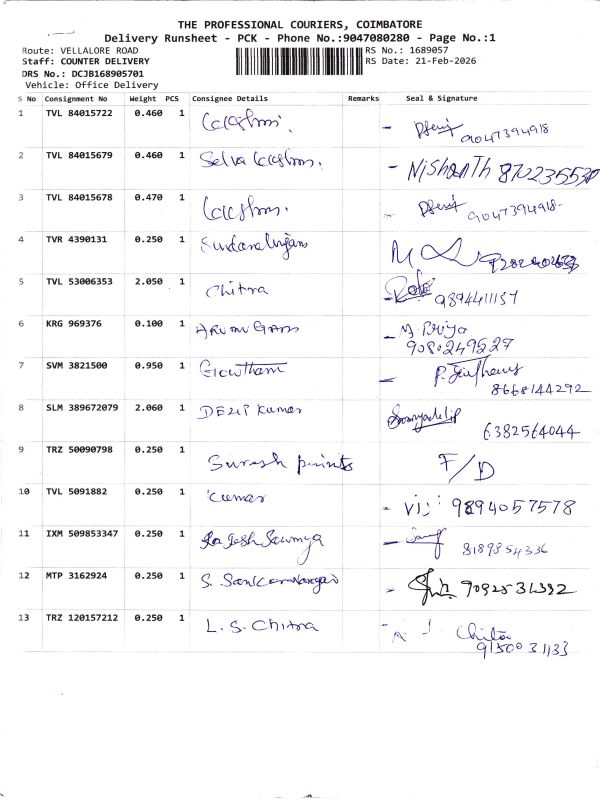 THE PROFESSIONAL COURIERS, COIMBATORE
Delivery Runsheet - PCK - Phone No.:9047080280 - Page No.:1
Route: VELLALORE ROAD RS No.: 1689057
Staff: COUNTER DELIVERY RS Date: 21-Feb-2026
DRS No.: DCJB168905701
Vehicle: Office Delivery
S No Consignment No Weight PCS Consignee Details Remarks Seal & Signature
1 TVL 84015722 0.460 1 9047394918
2 TVL 84015679 0.460 1 Selva - Nishanth
3 TVL 84015678 0.470 1 9047394918-
4 TVR 4390131 0.250 1
5 TVL 53006353 2.050 1 Chitra 9894411157
6 KRG 969376 0.100 1 - M. Priya
9080249527
7 SVM 3821500 0.950 1 Gowtham
8668144292
8 SLM 389672079 2.060 1 Kumar
6382564044
9 TRZ 50090798 0.250 1 Suresh prints F/D
10 TVL 5091882 0.250 1 Kumar - Viji 9894057578
11 IXM 509853347 0.250 1 Rajesh Sowmya
8189854336
12 MTP 3162924 0.250 1 S. Sankaranarayanan
13 TRZ 120157212 0.250 1 L.S. Chitra Chitra
9150031133